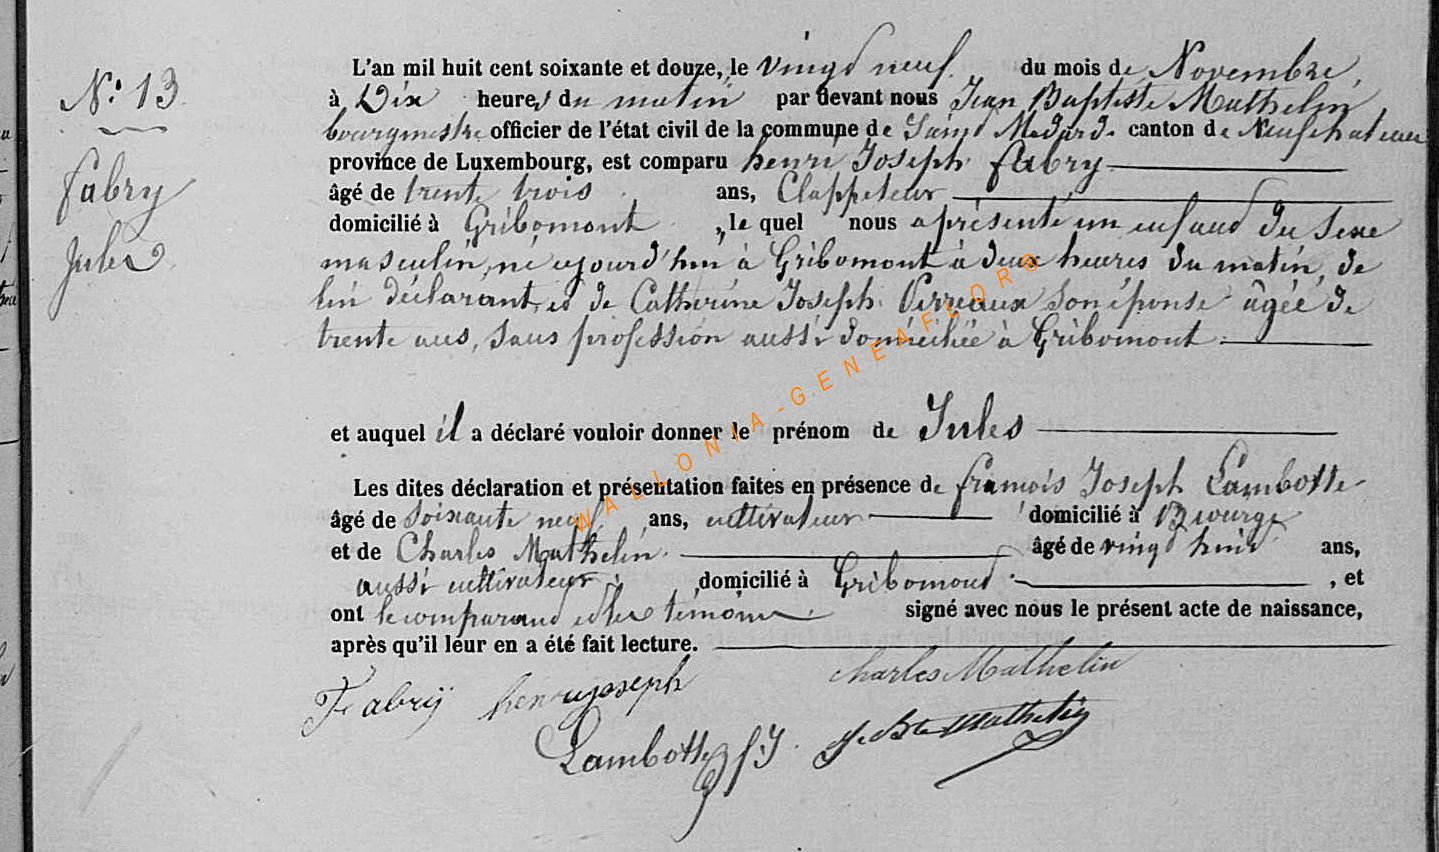 N° 13
Fabry
Jules
L'an mil huit cent soixante et douze, le vingt neuf du mois de Novembre,
à Dix heures du matin par devant nous Jean Baptiste Mathelin
bourgmestre officier de l'état civil de la commune de Saint Médard canton de Neufchateau
province de Luxembourg, est comparu henri Joseph fabry
âgé de trente trois ans, Clappeteur
domicilié à Gribomont, le quel nous a présenté un enfant du sexe
masculin, né aujourd'hui à Gribomont à deux heures du matin, de
lui déclarant, et de Catherine Joseph Pierreaux son épouse âgée de
trente ans, sans profession aussi domiciliée à Gribomont
et auquel il a déclaré vouloir donner le prénom de Jules
Les dites déclaration et présentation faites en présence de françois Joseph Lambotte
âgé de soixante neuf ans, cultivateur domicilié à Biourge
et de Charles Mathelin âgé de vingt huit ans,
aussi cultivateur, domicilié à Gribomont, et
ont le comparant et les témoins signé avec nous le présent acte de naissance,
après qu'il leur en a été fait lecture.
Fabrÿ henry joseph Charles Mathelin
Lambotte f J J. Bte Mathelin
WALLONIA-GENEAFLORO